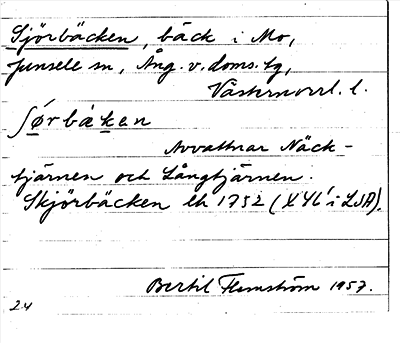 Sjörbäcken, bäck i Mo,
Junsele sn, Ång. v. doms. tg,
Västernorrl. l.
ʃǿrbàken
Avvattnar Näck-
tjärnen och Långtjärnen.
Skjörbäcken lh 1752 (X 46 i LSA).
Bertil Flemström 1957.
24